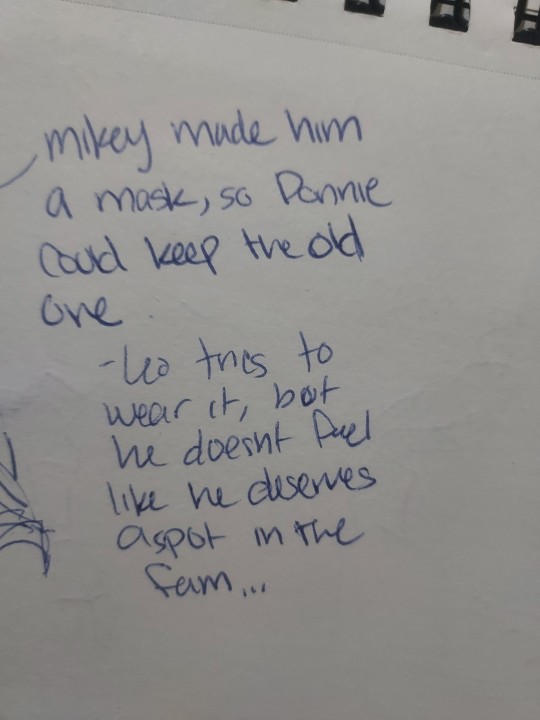 mikey made him
a mask, so Donnie
could keep the old
one
-Leo tries to
wear it, but
he doesnt feel
like he deserves
a spot in the
fam...